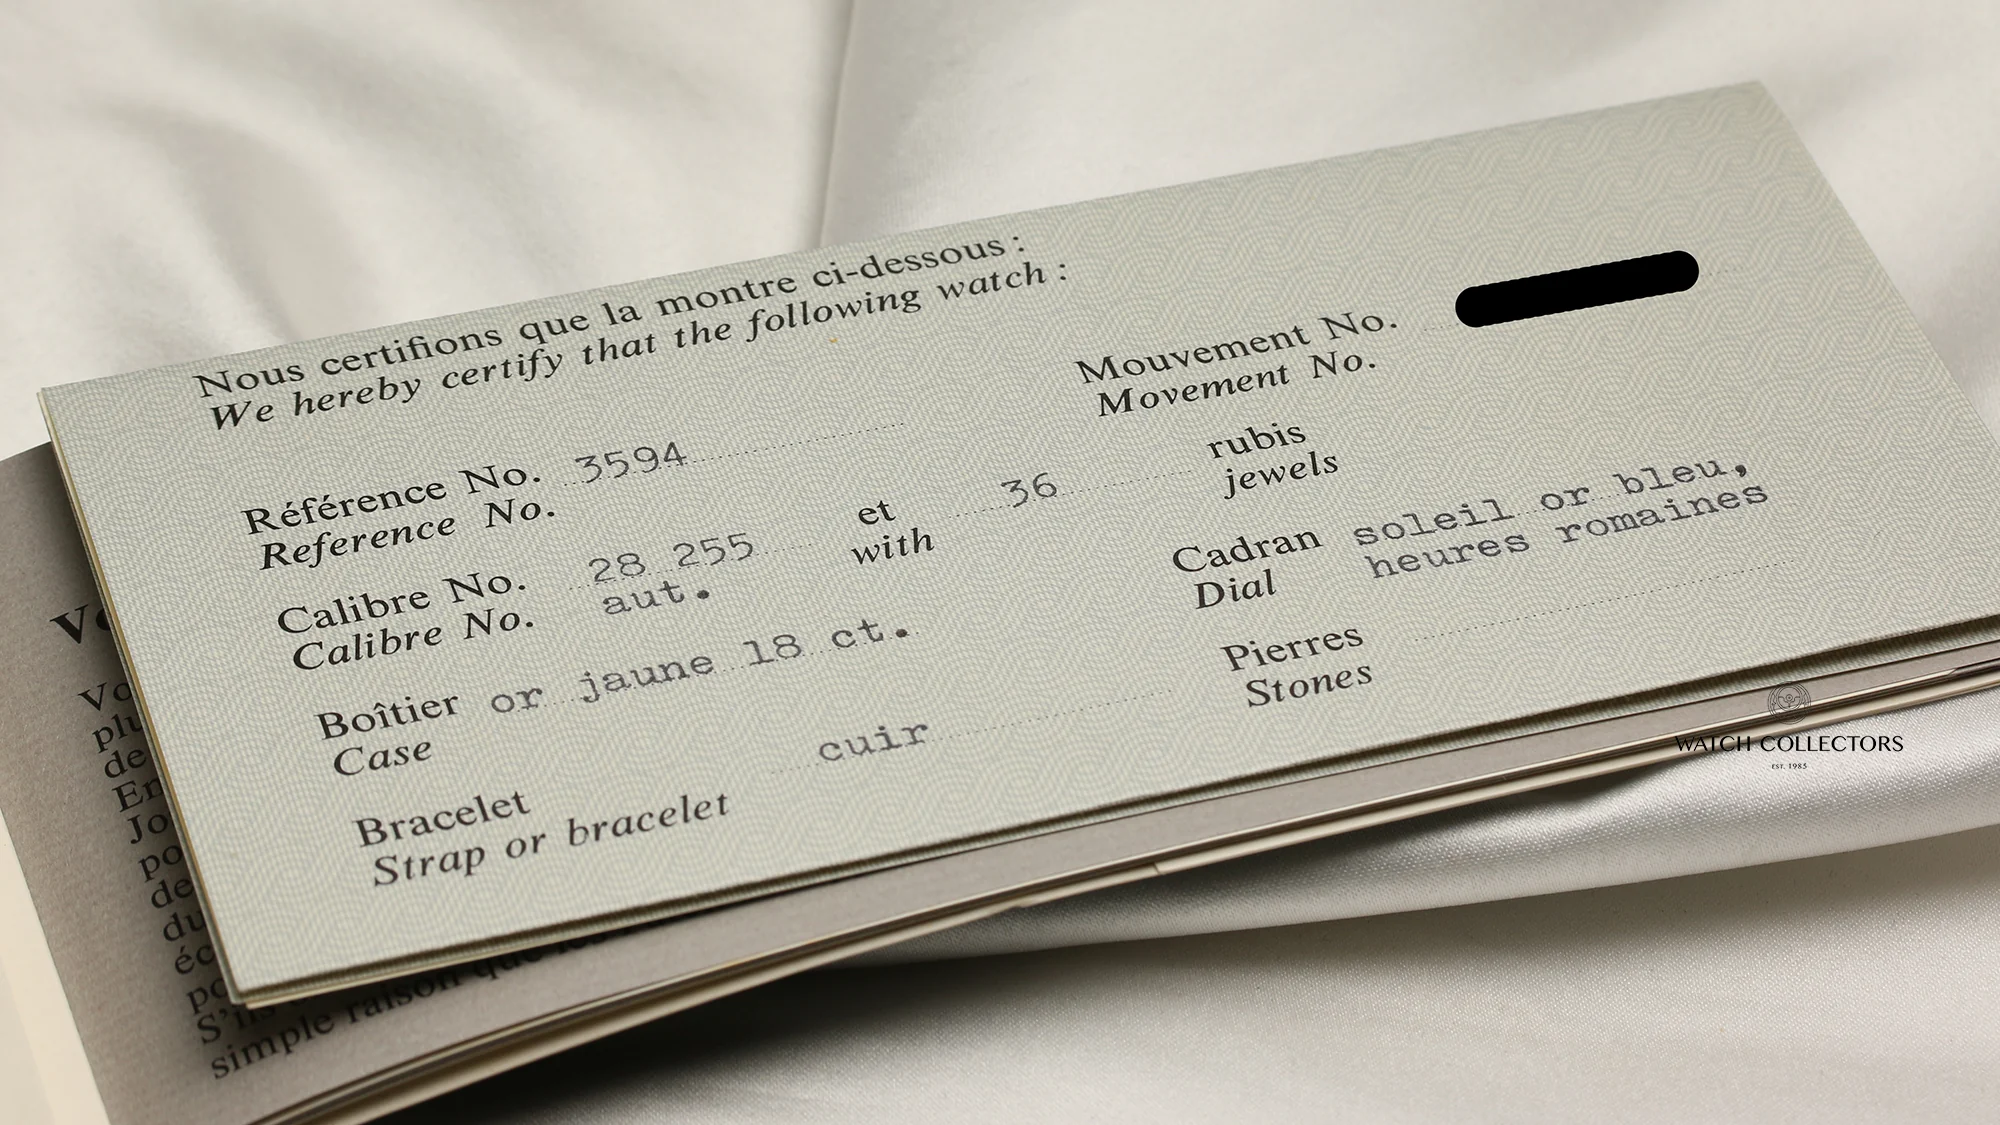 Nous certifions que la montre ci-dessous :
We hereby certify that the following watch :
Référence No. 3594
Reference No.
Mouvement No.
Movement No.
Calibre No. 28 255 et 36 rubis
Calibre No. aut. with jewels
Boîtier or jaune 18 ct.
Case
Cadran soleil or bleu,
Dial heures romaines
Bracelet cuir
Strap or bracelet
Pierres
Stones
simple raison que les
WATCH COLLECTORS
EST. 1985